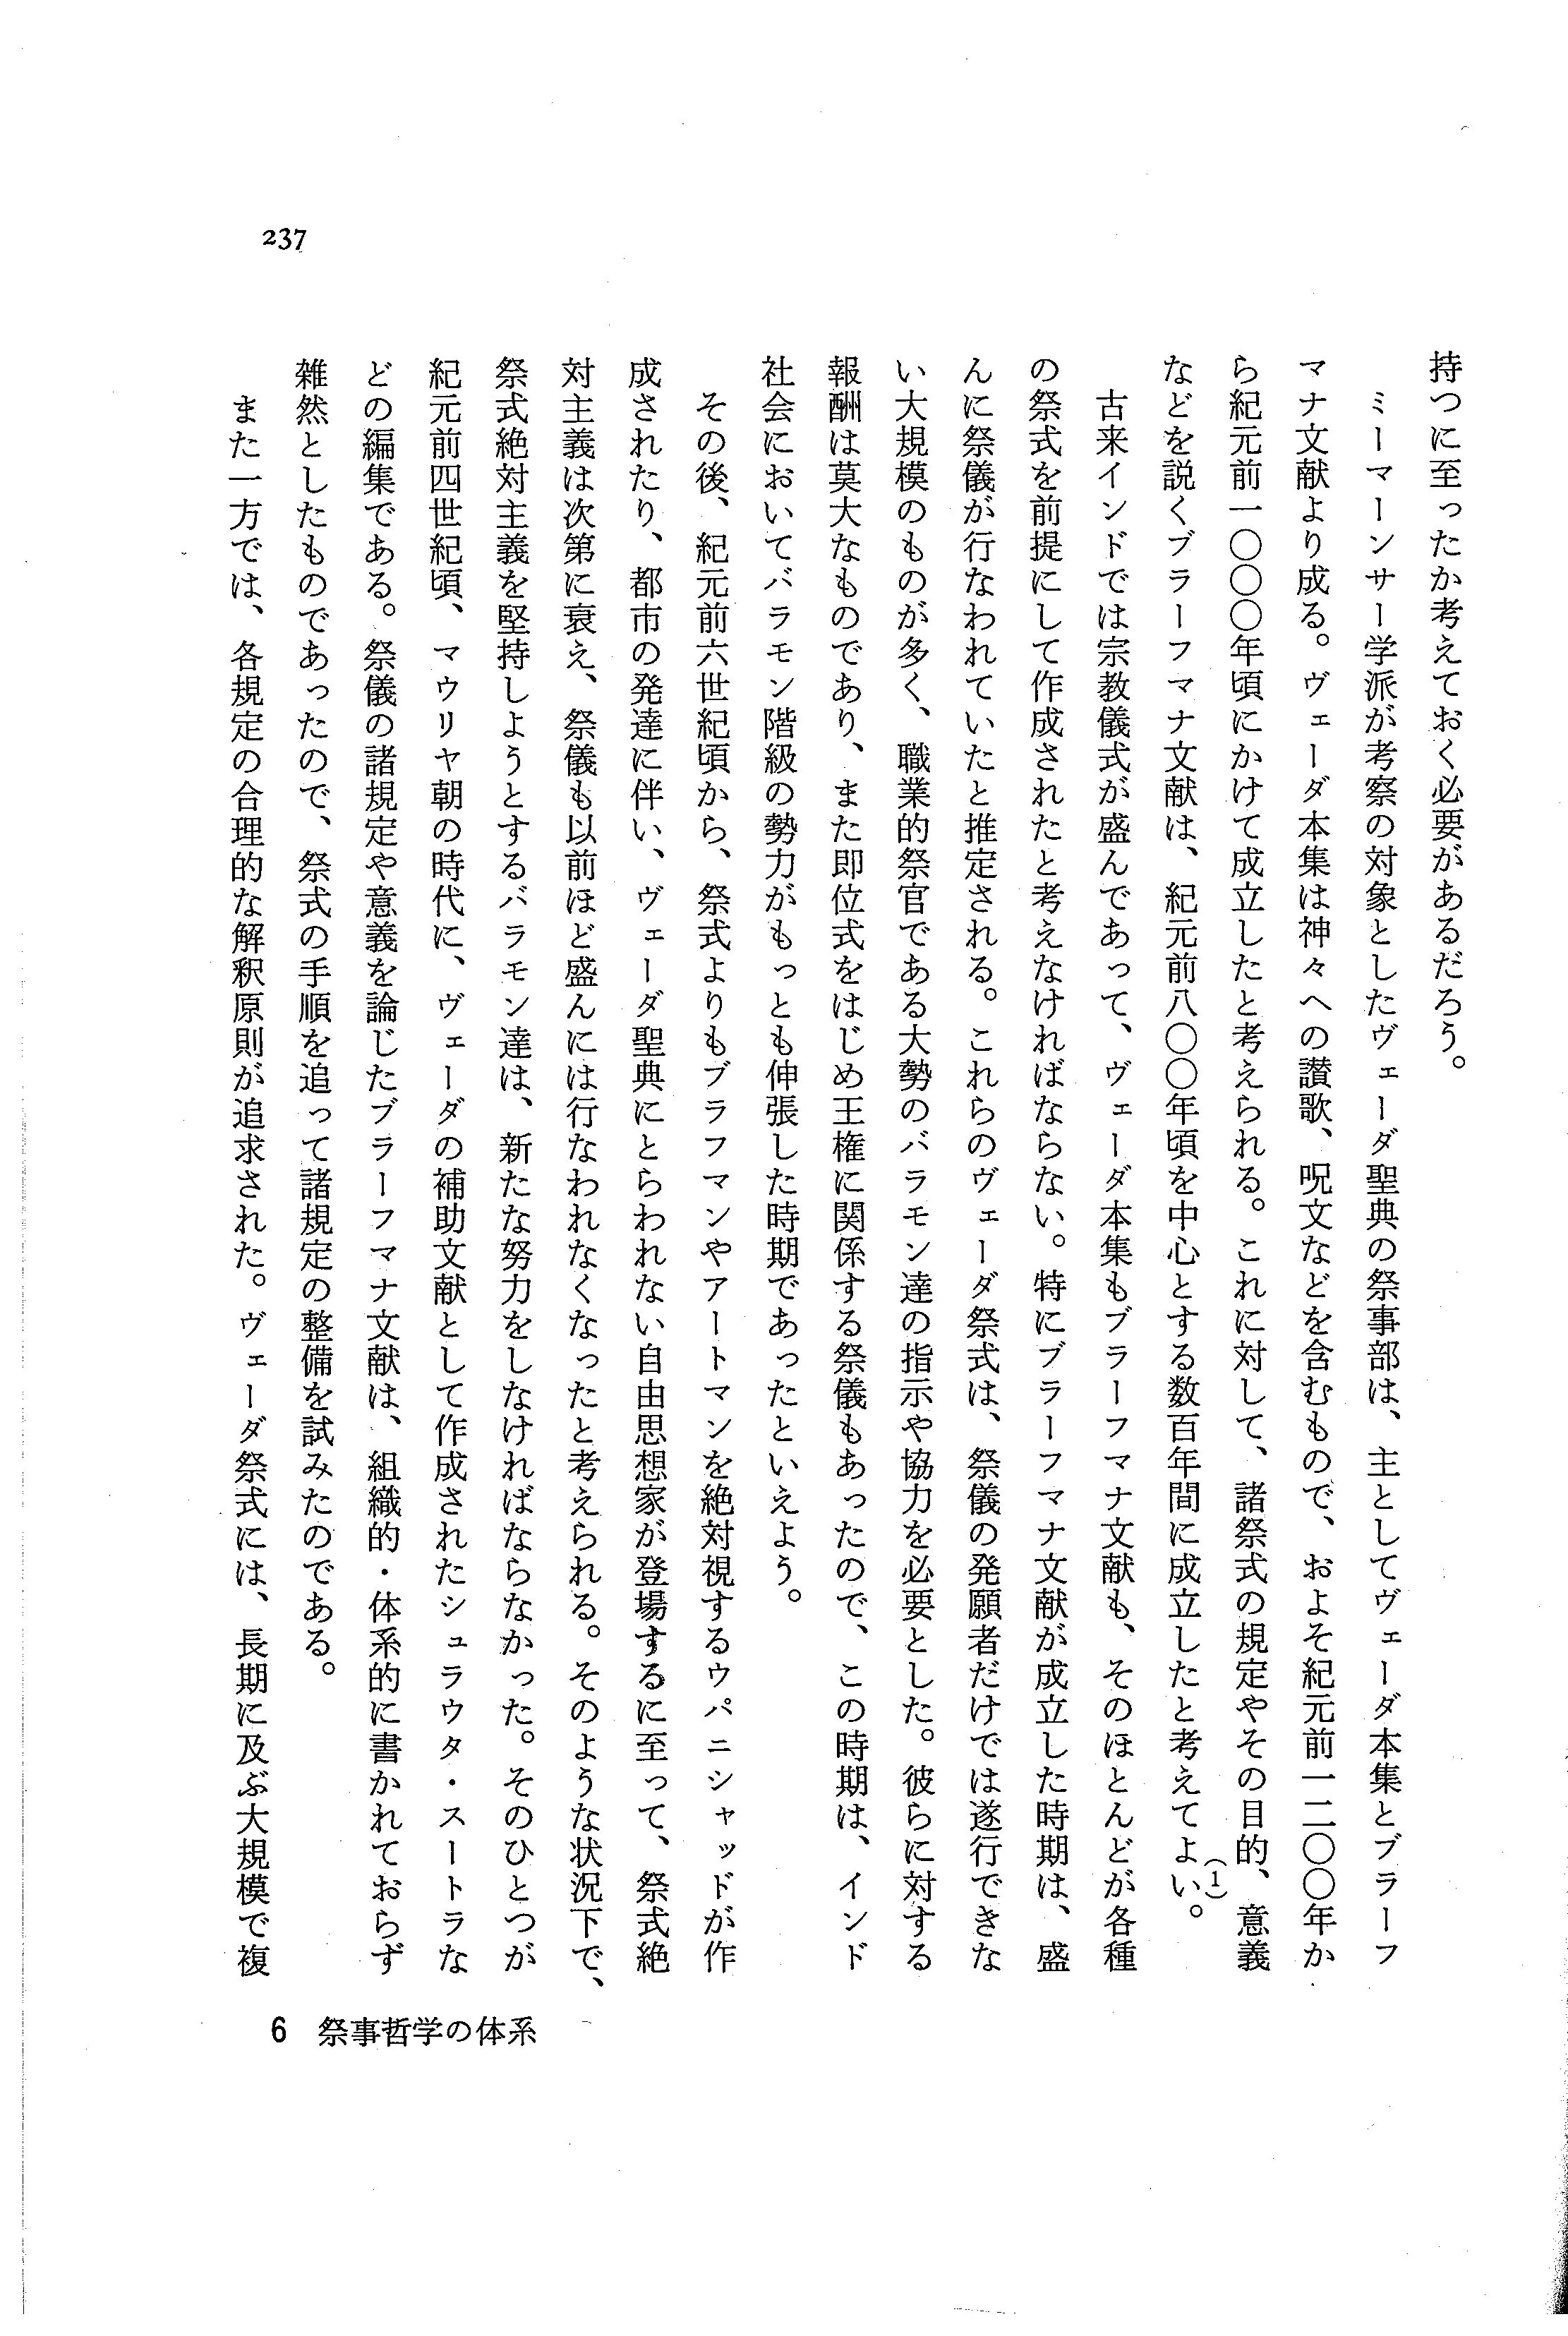 237
持つに至ったか考えておく必要があるだろう。
ミーマーンサー学派が考察の対象としたヴェーダ聖典の祭事部は、主としてヴェーダ本集とブラーフ
マナ文献より成る。ヴェーダ本集は神々への讃歌、呪文などを含むもので、およそ紀元前一二〇〇年か
ら紀元前一〇〇〇年頃にかけて成立したと考えられる。これに対して、諸祭式の規定やその目的、意義
などを説くブラーフマナ文献は、紀元前八〇〇年頃を中心とする数百年間に成立したと考えてよい(1)。
古来インドでは宗教儀式が盛んであって、ヴェーダ本集もブラーフマナ文献も、そのほとんどが各種
の祭式を前提にして作成されたと考えなければならない。特にブラーフマナ文献が成立した時期は、盛
んに祭儀が行なわれていたと推定される。これらのヴェーダ祭式は、祭儀の発願者だけでは遂行できな
い大規模のものが多く、職業的祭官である大勢のバラモン達の指示や協力を必要とした。彼らに対する
報酬は莫大なものであり、また即位式をはじめ王権に関係する祭儀もあったので、この時期は、インド
社会においてバラモン階級の勢力がもっとも伸張した時期であったといえよう。
その後、紀元前六世紀頃から、祭式よりもブラフマンやアートマンを絶対視するウパニシャッドが作
成されたり、都市の発達に伴い、ヴェーダ聖典にとらわれない自由思想家が登場するに至って、祭式絶
対主義は次第に衰え、祭儀も以前ほど盛んには行なわれなくなったと考えられる。そのような状況下で、
祭式絶対主義を堅持しようとするバラモン達は、新たな努力をしなければならなかった。そのひとつが
紀元前四世紀頃、マウリヤ朝の時代に、ヴェーダの補助文献として作成されたシュラウタ・スートラな
どの編集である。祭儀の諸規定や意義を論じたブラーフマナ文献は、組織的・体系的に書かれておらず
雑然としたものであったので、祭式の手順を追って諸規定の整備を試みたのである。
また一方では、各規定の合理的な解釈原則が追求された。ヴェーダ祭式には、長期に及ぶ大規模で複
6 祭事哲学の体系